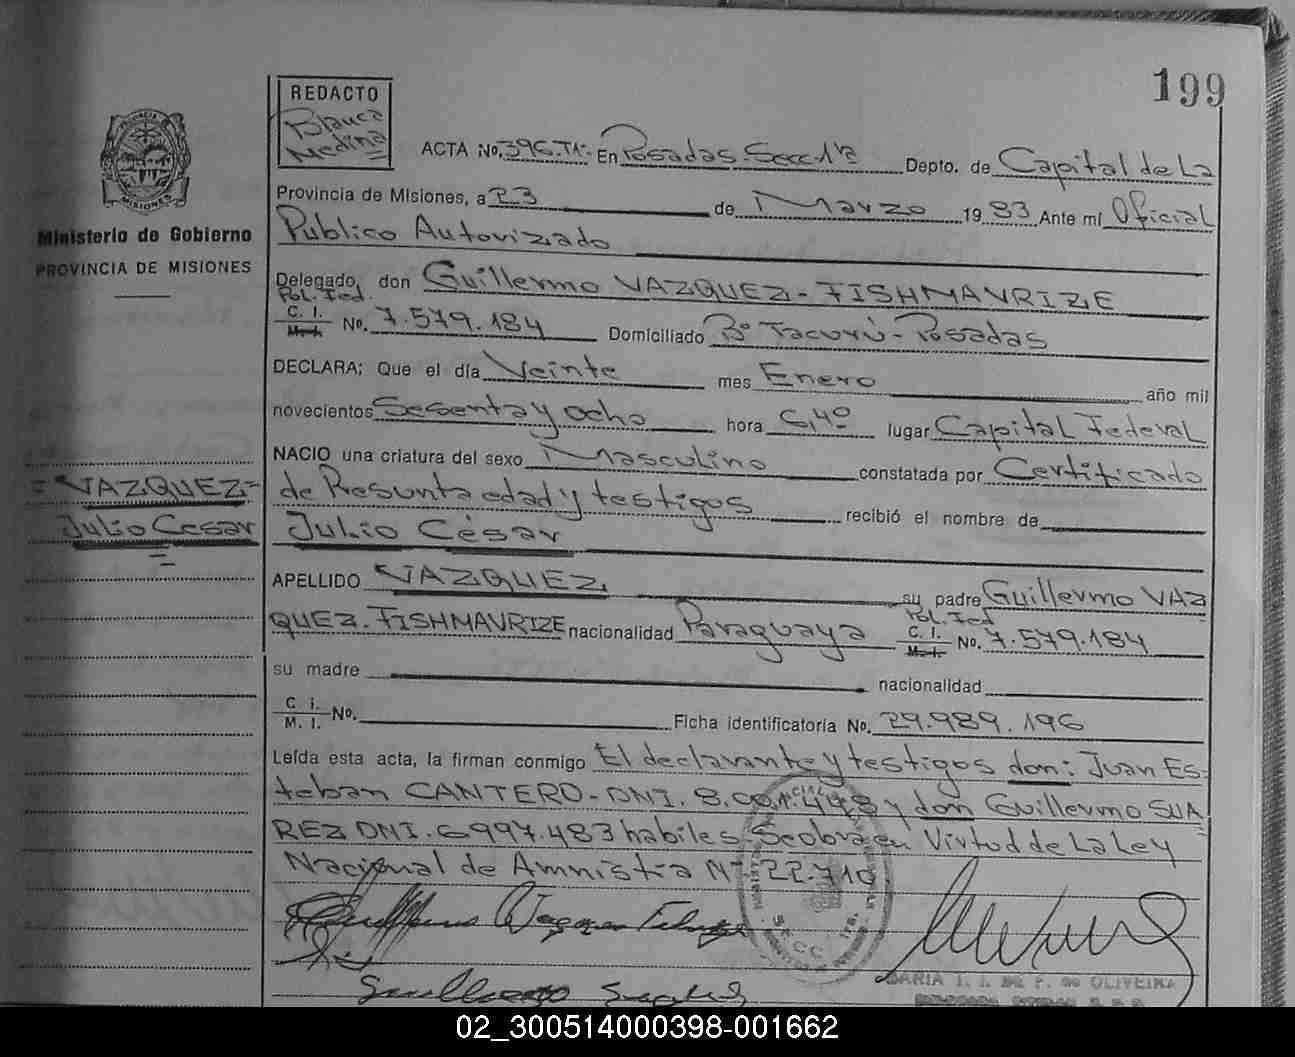 199
REDACTO
Blanca
Medina
ACTA No. 396.T1º- En Posadas-Secc-1ra Depto. de Capital de La
Provincia de Misiones, a 23 de Marzo 1983 Ante mí Oficial
Publico Autorizado
Ministerio de Gobierno
PROVINCIA DE MISIONES
Delegado, don Guillermo VAZQUEZ-FISHMAVRIZE
Pol. Fed.
C. I.
M. I. No. 7.579.184 Domiciliado Bº Tacurú-Posadas
DECLARA; Que el día Veinte mes Enero año mil
novecientos Sesenta y Ocho hora 6,40 lugar Capital Federal
NACIO una criatura del sexo Masculino constatada por Certificado
de Presunta edad y testigos recibió el nombre de
=VAZQUEZ=
Julio Cesar
Julio César
APELLIDO VAZQUEZ su padre Guillermo VAZ
QUEZ-FISHMAVRIZE nacionalidad Paraguaya Pol. Fed C. I. M. I. No. 7.579.184
su madre nacionalidad
C. I.
M. I. No. Ficha identificatoria No. 29.989.196
Leída esta acta, la firman conmigo El declarante y testigos don: Juan Es-
teban CANTERO-DNI. 8.001.448 y don Guillermo SUA
REZ DNI. 6997.483 habiles Se obra en Virtud de La Ley
Nacional de Amnistia Nº 22.710
MARIA I. I. DE P. DE OLIVEIRA
02_300514000398-001662